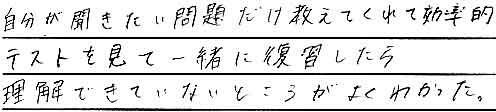 自分が聞きたい問題だけ教えてくれて効率的
テストを見て一緒に復習したら
理解できていないところがよくわかった。